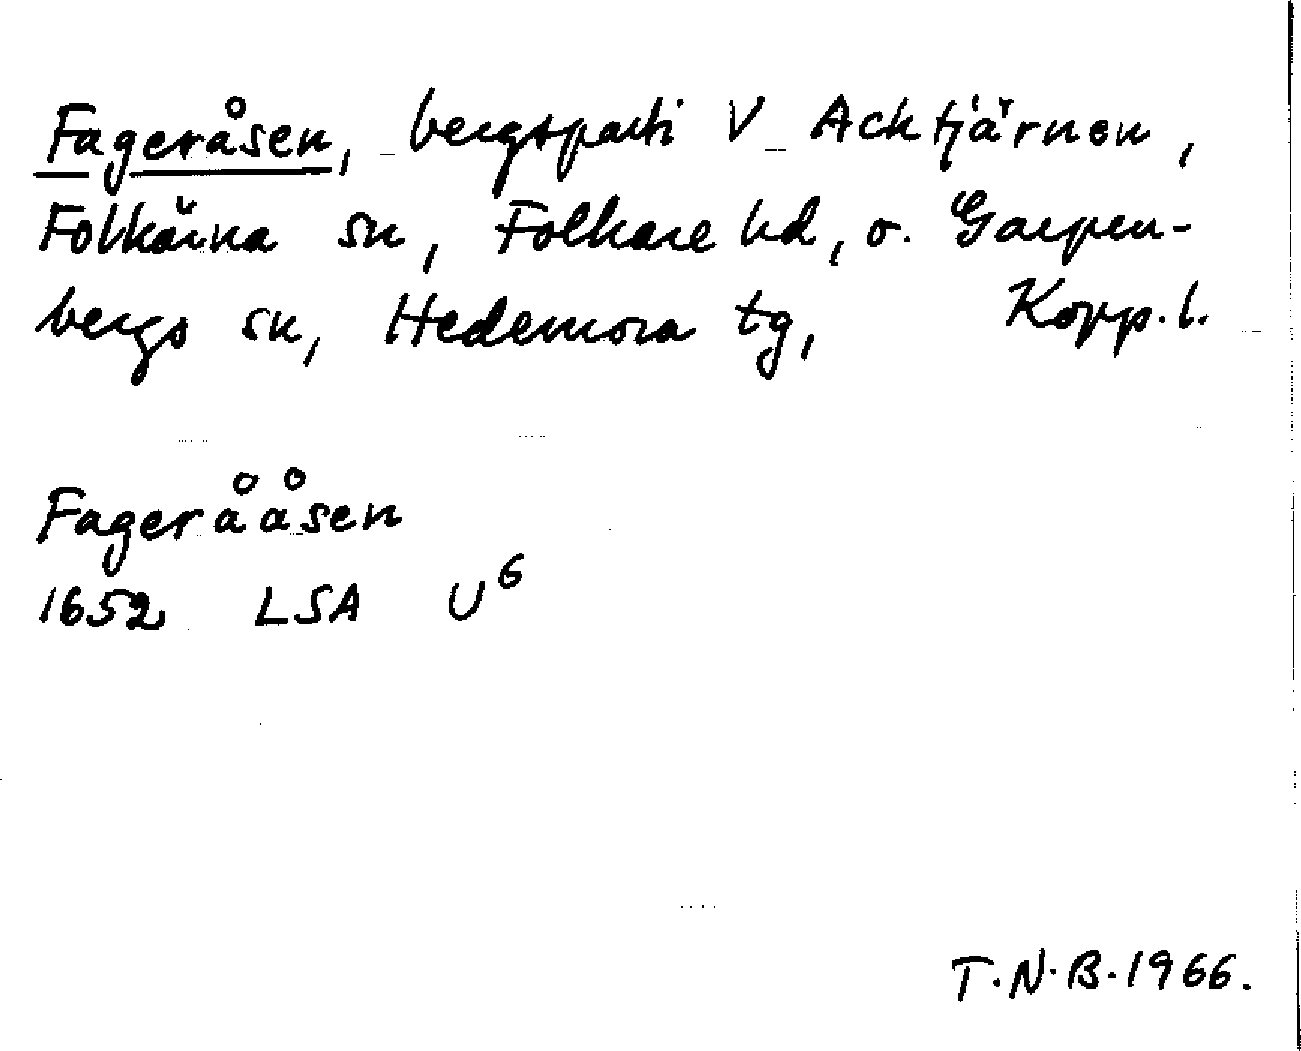 Fageråsen, bergsparti V Acktjärnen,
Folkärna sn, Folkare hd, o. Garpen-
bergs sn, Hedemora tg, Kopp. l.
Fageråÿsen
1652 LSA U6
T.N.B. 1966.